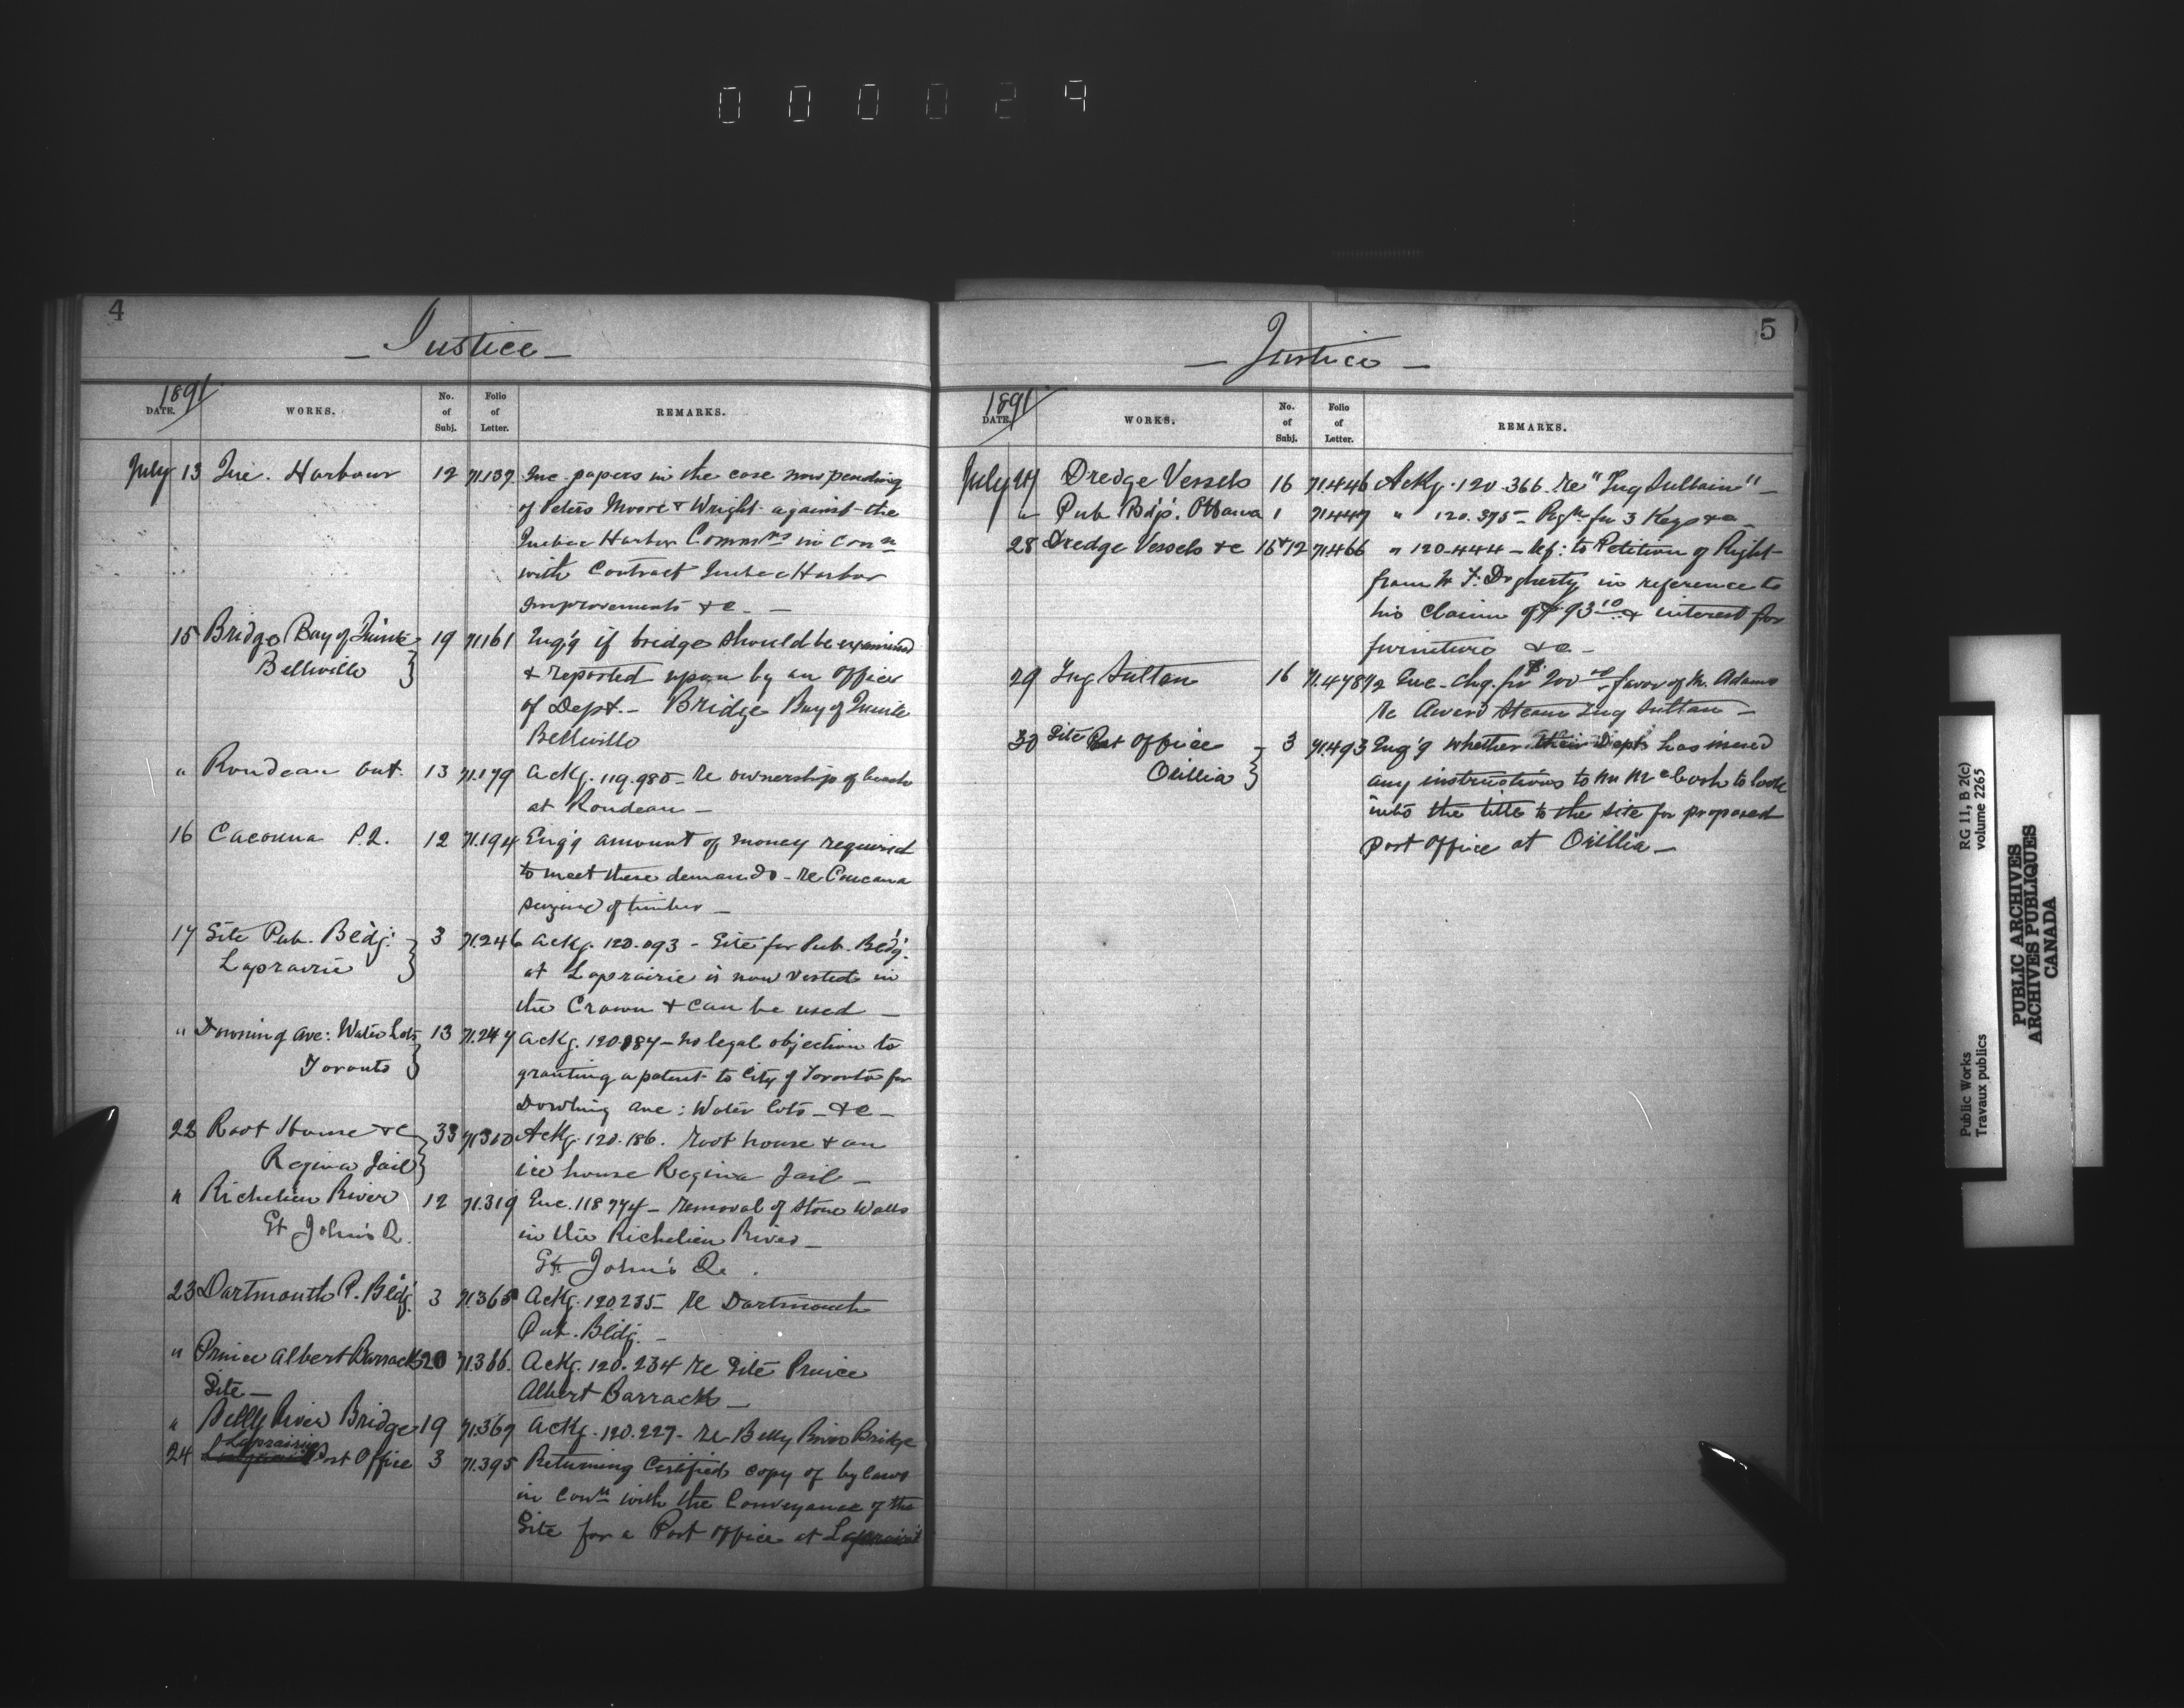 000029
4
Justice
1891
DATE. WORKS. No. of Subj. Folio of Letter. REMARKS.
July 13 Que. Harbour 12 71.137 Enc. papers in the case now pending
of Peters Moore & Wright against the
Quebec Harbor Commrs in conn
with Contract Quebec Harbor
Improvements &c - —
15 Bridge Bay of Quinte 19 71.161 Enq'g if bridge should be examined
Belleville & reported upon by an Officer
of Dept. - Bridge Bay of Quinte
Belleville
" Rondeau Ont. 13 71.179 Ackg. 119.985 - re ownership of beach
at Rondeau —
16 Cacouna P.Q. 12 71.194 Enq'g amount of money required
to meet these demands - re Cacouna
seizure of timber —
17 Site Pub. Bldg. 3 71.246 Ackg. 120.093 - Site for Pub. Bldg.
Laprairie at Laprairie is now vested in
the Crown & can be used —
" Downing Ave: Water Lots 13 71.247 Ackg. 120.084 - no legal objection to
Toronto granting a patent to City of Toronto for
Dowling Ave: Water lots - &c -
22 Root House &c 33 71.310 Ackg. 120.186. root house & an
Regina Jail ice house Regina Jail —
" Richelieu River 12 71.319 Enc. 118774 - removal of stone walls
St John's Q. in the Richelieu River —
St. John's Qe.
23 Dartmouth P. Bldg. 3 71.365 Ackg. 120.235 - re Dartmouth
Pub. Bldg. -
" Prince Albert Barracks 20 71.366. Ackg. 120.234 re Site Prince
Site — Albert Barracks —
" Belly River Bridge 19 71.367 Ackg. 120.227 - re Belly River Bridge
Laprairie
24 Post Office 3 71.395 Returning Certified copy of by laws
in conn with the Conveyance of the
Site for a Post Office at Laprairie
5
Justice
1891
DATE. WORKS. No. of Subj. Folio of Letter. REMARKS.
July 27 Dredge Vessels 16 71.446 Ackg. 120.366. re "Tug Sultain" —
" Pub Bdgs. Ottawa 1 71.447 " 120.375 - for 3 Keys &c —
28 Dredge Vessels &c 16 & 12 71.466 " 120.444 - Ref: to Petition of Right
from W F. Dogherty in reference to
his claim of $93 10 & interest for
furniture &c -
29 Tug Sultan 16 71.478 1/2 Enc - chq. for $200 00 favor of M. Adams
re Award Steam Tug Sultan —
30 Site Post Office 3 71.493 Enq'g whether their Dept has issued
Orillia any instructions to Mr McCosh to look
into the title to the site for proposed
Post Office at Orillia —
Public Works
Travaux publics
RG 11, B 2(c)
volume 2265
PUBLIC ARCHIVES
ARCHIVES PUBLIQUES
CANADA